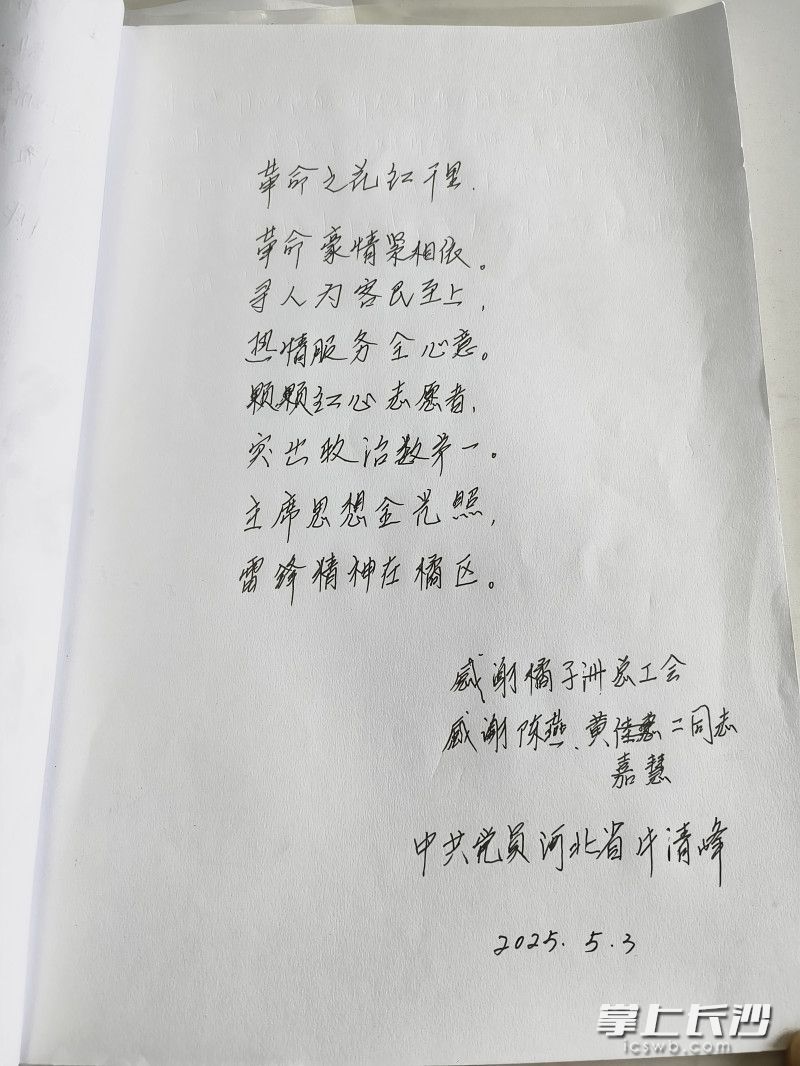 革命之花红千里,
革命豪情紧相依。
寻人为客民至上,
热情服务全心意。
颗颗红心志愿者,
突出政治数第一。
主席思想金光照,
雷锋精神在橘区。
感谢橘子洲总工会
感谢陈燕、黄佳惠二同志
嘉慧
中共党员河北省牛清峰
2025.5.3
掌上长沙
icswb.com